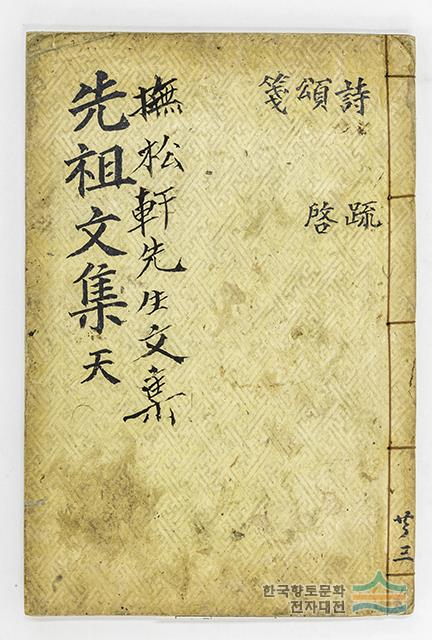 詩 疏
頌 啓
箋
撫松軒先生文集
先祖文集 天
共三
한국향토문화
전자대전